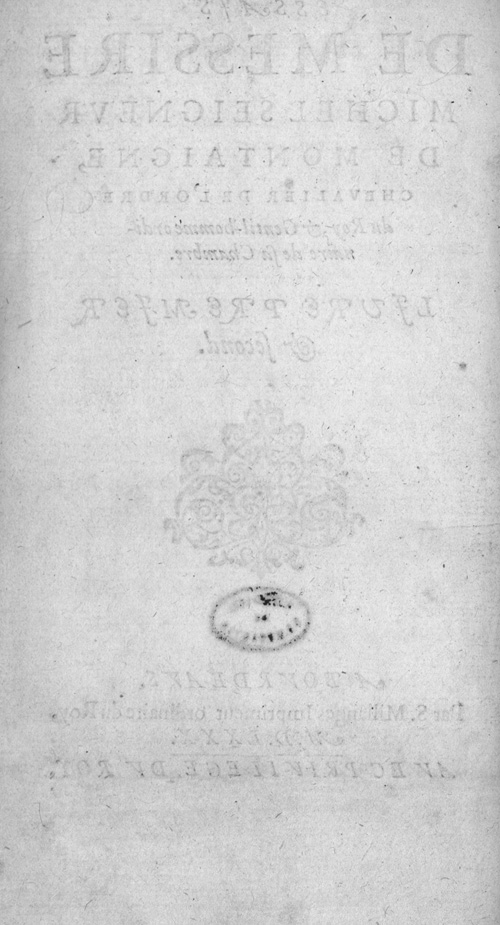 ESSAIS
DE MESSIRE
MICHEL SEIGNEVR
DE MONTAIGNE,
CHEVALIER DE L'ORDRE
du Roy, & Gentil-homme ordi-
naire de sa Chambre.
LIVRE PREMIER
& second.
A BOVRDEAVS.
Par S. Millanges Imprimeur ordinaire du Roy.
M.D.LXXX.
AVEC PRIVILEGE DV ROY.